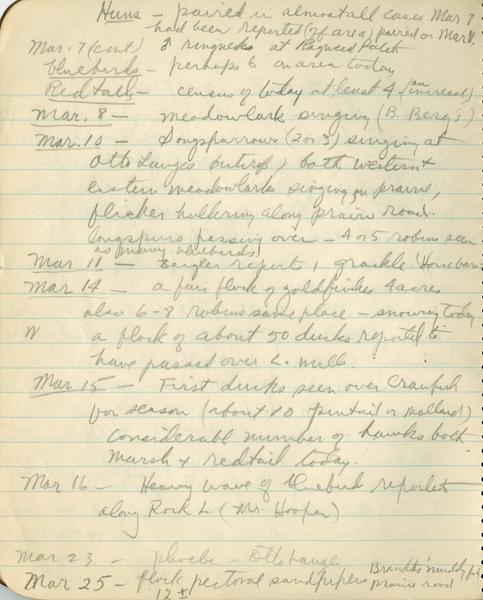 Huns - paired in almost all cases Mar 7
had been reported (2 of area) paired on Mar 1.
Mar. 7 (cont) 8 ringnecks at Ragweed Patch
bluebirds - perhaps 6 on area today
Redtails - census of today at least 4 (an increase)
Mar. 8 - meadowlark singing (B. Berg's)
Mar. 10 - Songsparrows (2 or 3) singing at
Otto Lange's both western +
eastern meadowlarks singing on prairie,
flicker hollering along prairie road.
longspurs passing over - 4 or 5 robins seen
as many bluebirds)
Mar 11 - Zeigler reports 1 grackle
Mar 14 - a fair flock of goldfinches 4 acres
also 6-8 robins same place - snowing today
N a flock of about 50 ducks reported to
have passed over L. mill.
Mar 15 - First ducks seen over Crawfish
for season (about 10 pintail or mallard)
Considerable number of hawks both
marsh + redtail today.
Mar 16 - Heavy wave of bluebirds reported
along Rock L. (Mr. Hooper)
Mar 23 - phoebe - Otto Lange
Mar 25 - flock pectoral sandpipers Brandt's
12 ± prairie road